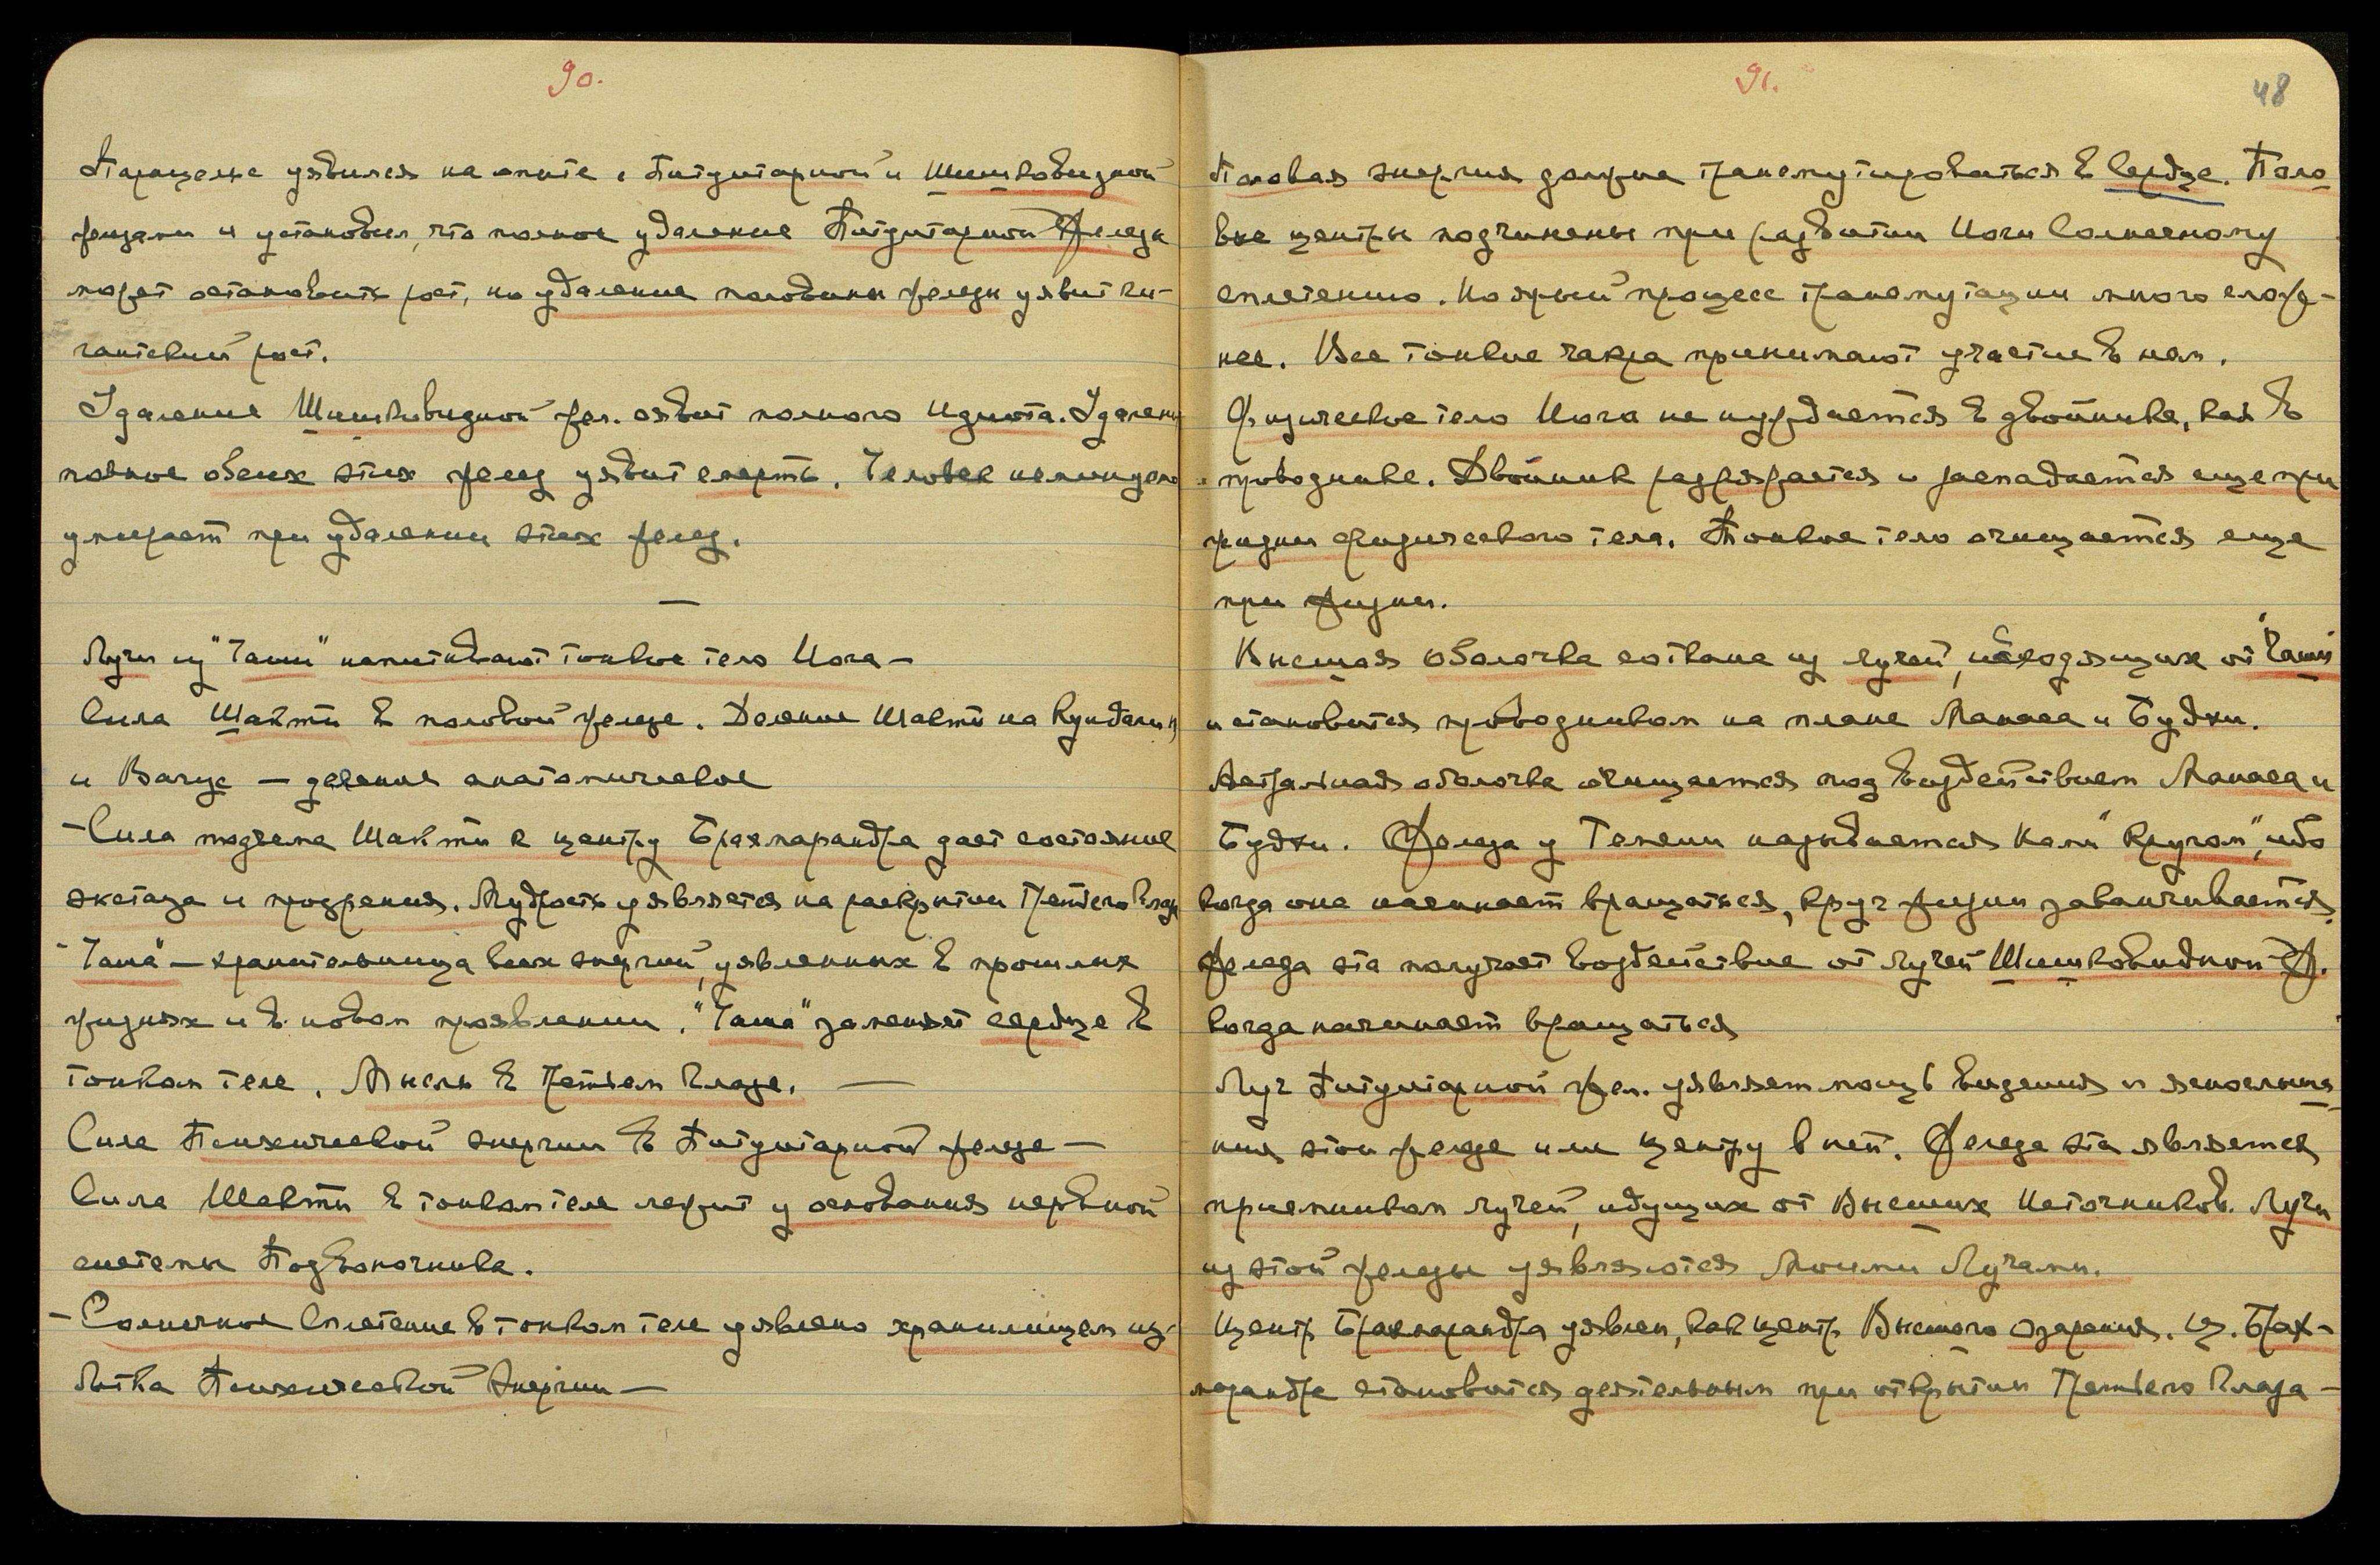 90.
Парацельс уявился на опыте с Питуитарной и Шишковидной
железами и установил, что полное удаление Питуитарной Железы
может остановить рост, но удаление половины железы уявит ги-
гантский рост.
Удаление Шишковидной жел. явит полного Идиота. Удаление
полное обеих этих желез уявит смерть. Человек неминуемо
умирает при удалении этих желез.
—
Лучи из "Чаши" напитывают тонкое тело Йога —
Сила Шакти в половой железе. Деление Шакти на Кундалини
и Валус — деление анатомическое
— Сила подъема Шакти к центру Брахмарандра дает состояние
экстаза и прозрения. Мудрость уявляется на раскрытии Третьего Глаза
"Чаша" — хранительница всех энергий, уявленных в прошлых
жизнях и в новом проявлении. "Чаша" заменяет сердце в
тонком теле. Мысль в Третьем Глазе. —
Сила Психической энергии в Питуитарной железе —
Сила Шакти в тонком теле лежит у основания нервной
системы Позвоночника.
— Солнечное Сплетение в тонком теле уявлено хранилищем из-
бытка Психической Энергии —
91.
48
Половая энергия должна трансмутироваться в Сердце. Поло
вые центры подчинены при развитии Йоги Солнечному
сплетению. Но ярый процесс трансмутации много слож-
нее. Все тонкие чакры принимают участие в нем.
Физическое тело Йога не нуждается в двойнике, как в
проводнике. Двойник разряжается и распадается еще при
жизни физического тела. Тонкое тело очищается еще
при жизни.
Высшая оболочка соткана из лучей, исходящих от "Чаши"
и становится проводником на плане Манаса и Буддхи.
Астральная оболочка очищается под воздействием Манаса и
Буддхи. Железа у Темени называется Нами "Кругом", ибо
когда она начинает вращаться, круг жизни заканчивается.
Железа эта получает воздействие от лучей Шишковидной Ж.
когда начинает вращаться
Луч Питуитарной жел. уявляет мощь видения и
ния этой железе или центру в ней. Железа эта является
приемником лучей, идущих от Высших Источников. Лучи
из этой железы уявляются Моими Лучами.
Центр Брахмарандра уявлен, как центр Высшего Озарения. Ц. Брах-
марандра становится деятельным при открытии Третьего Глаза —